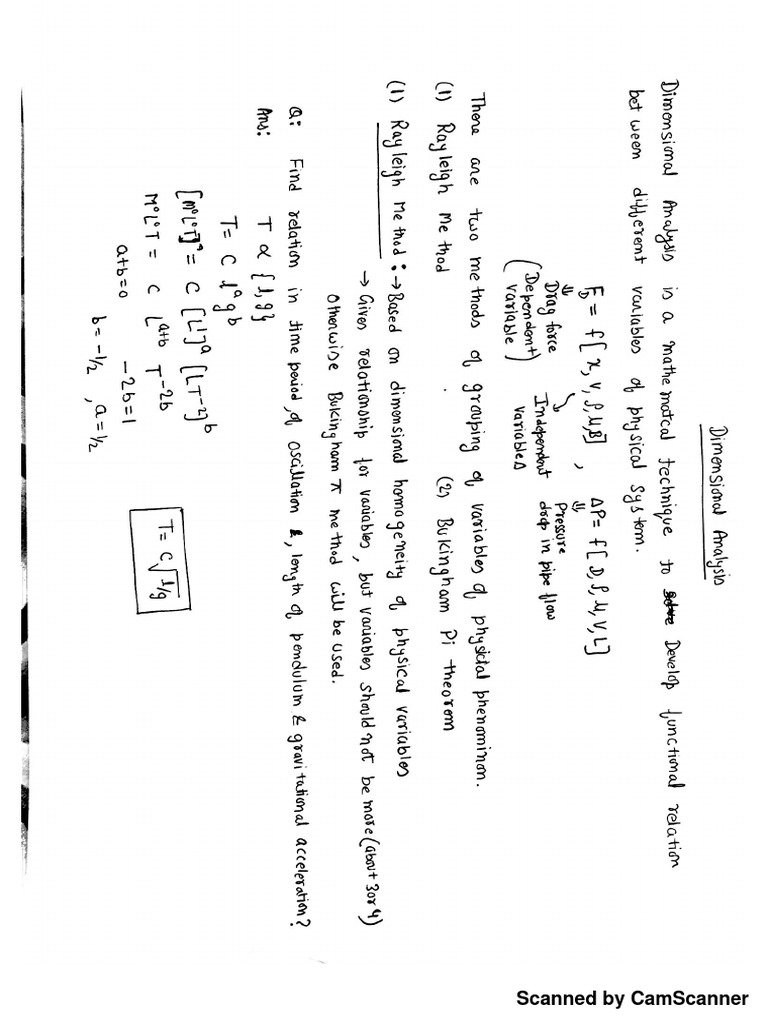 Dimensional Analysis
Dimensional Analysis is a mathematcal technique to Develop functional relation
between different variables of physical system.
F_D = f[x, V, ρ, μ, B] , ΔP = f[D, ρ, μ, V, L]
⇓ ⇓
Drag force Independent Pressure
(Dependent variables drop in pipe flow
variable)
There are two methods of grouping of variables of physictal phenominon.
(1) Rayleigh Method (2) Bukingham Pi theorem
(1) Rayleigh Method : → Based on dimensional homogeneity of physical variables
→ Gives relationship for variables, but variables should not be more (about 3 or 4)
Otherwise Bukingham π method will be used.
Q: Find relation in time period, of oscillation &, length of pendulum & gravitational acceleration?
Ans: T ∝ {l, g}
T = C l^a g^b
[M°L°T]° = C [L']^a [LT^-2]^b
M°L°T = C L^a+b T^-2b
a+b=0 -2b=1
b = -1/2 , a = 1/2
T = C√l/g
Scanned by CamScanner